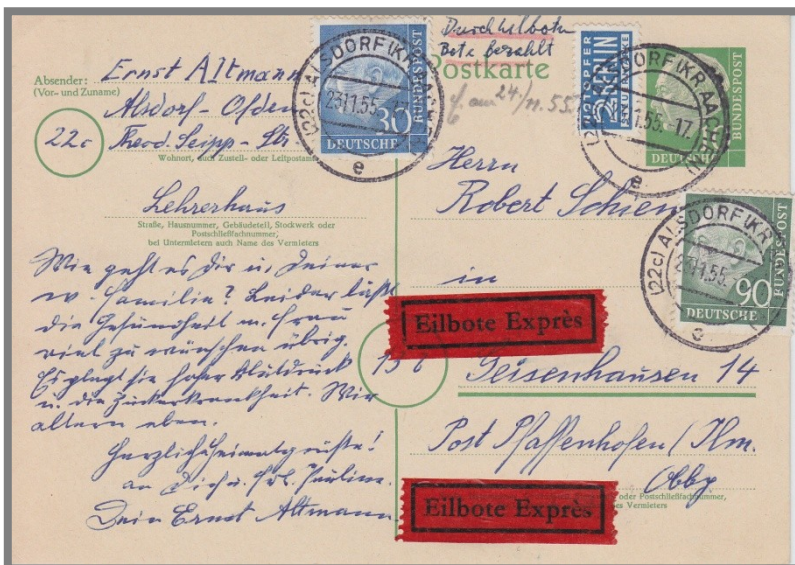 Durch Eilboten
Bote bezahlt
Postkarte
24/11.55
Absender: Ernst Altmann
(Vor- und Zuname)
Alsdorf-Ofden
22c Theod. Seipp-Str.
Wohnort, auch Zustell- oder Leitpostamt
Lehrerhaus
Straße, Hausnummer, Gebäudeteil, Stockwerk oder
Postschließfachnummer,
bei Untermietern auch Name des Vermieters
Wie geht es Dir u. Deiner
w. Familie? Leider läßt
die Gesundheit m. Frau
viel zu wünschen übrig.
Es plagt sie hoher Blutdruck
u. die Zuckerkrankheit. Wir
altern eben.
Herzliche Heimatgrüße!
an Dich u. Frl. Pauline.
Dein Ernst Altmann
(22c) ALSDORF (KR AACHEN)
23.11.55.-17
e
30
DEUTSCHE
BUNDESPOST
NOTOPFER
2 BERLIN
STEUERMARKE
(22c) ALSDORF (KR AACHEN)
23.11.55.-17
e
DEUTSCHE
BUNDESPOST
Herrn
Robert Schien
(22c) ALSDORF (KR
23.11.55.
e
90
DEUTSCHE
BUNDESPOST
in
Eilbote Exprès
13b Geisenhausen 14
Post Pfaffenhofen/Ilm.
Obby
oder Postschließfachnummer,
es Vermieters
Eilbote Exprès